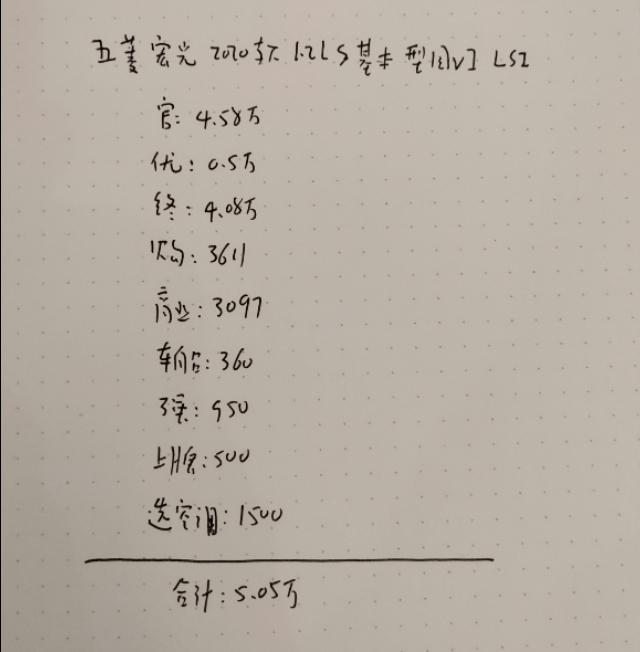 五菱宏光 2020款 1.2L S基本型国VI LSI
官: 4.58万
优: 0.5万
终: 4.08万
购: 3611
商业: 3097
车船: 360
强: 950
上牌: 500
选空调: 1500
合计: 5.05万